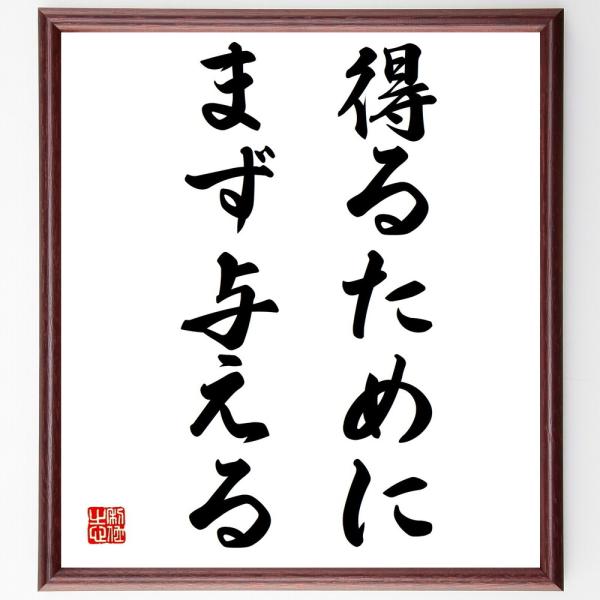 得るために
まず与える